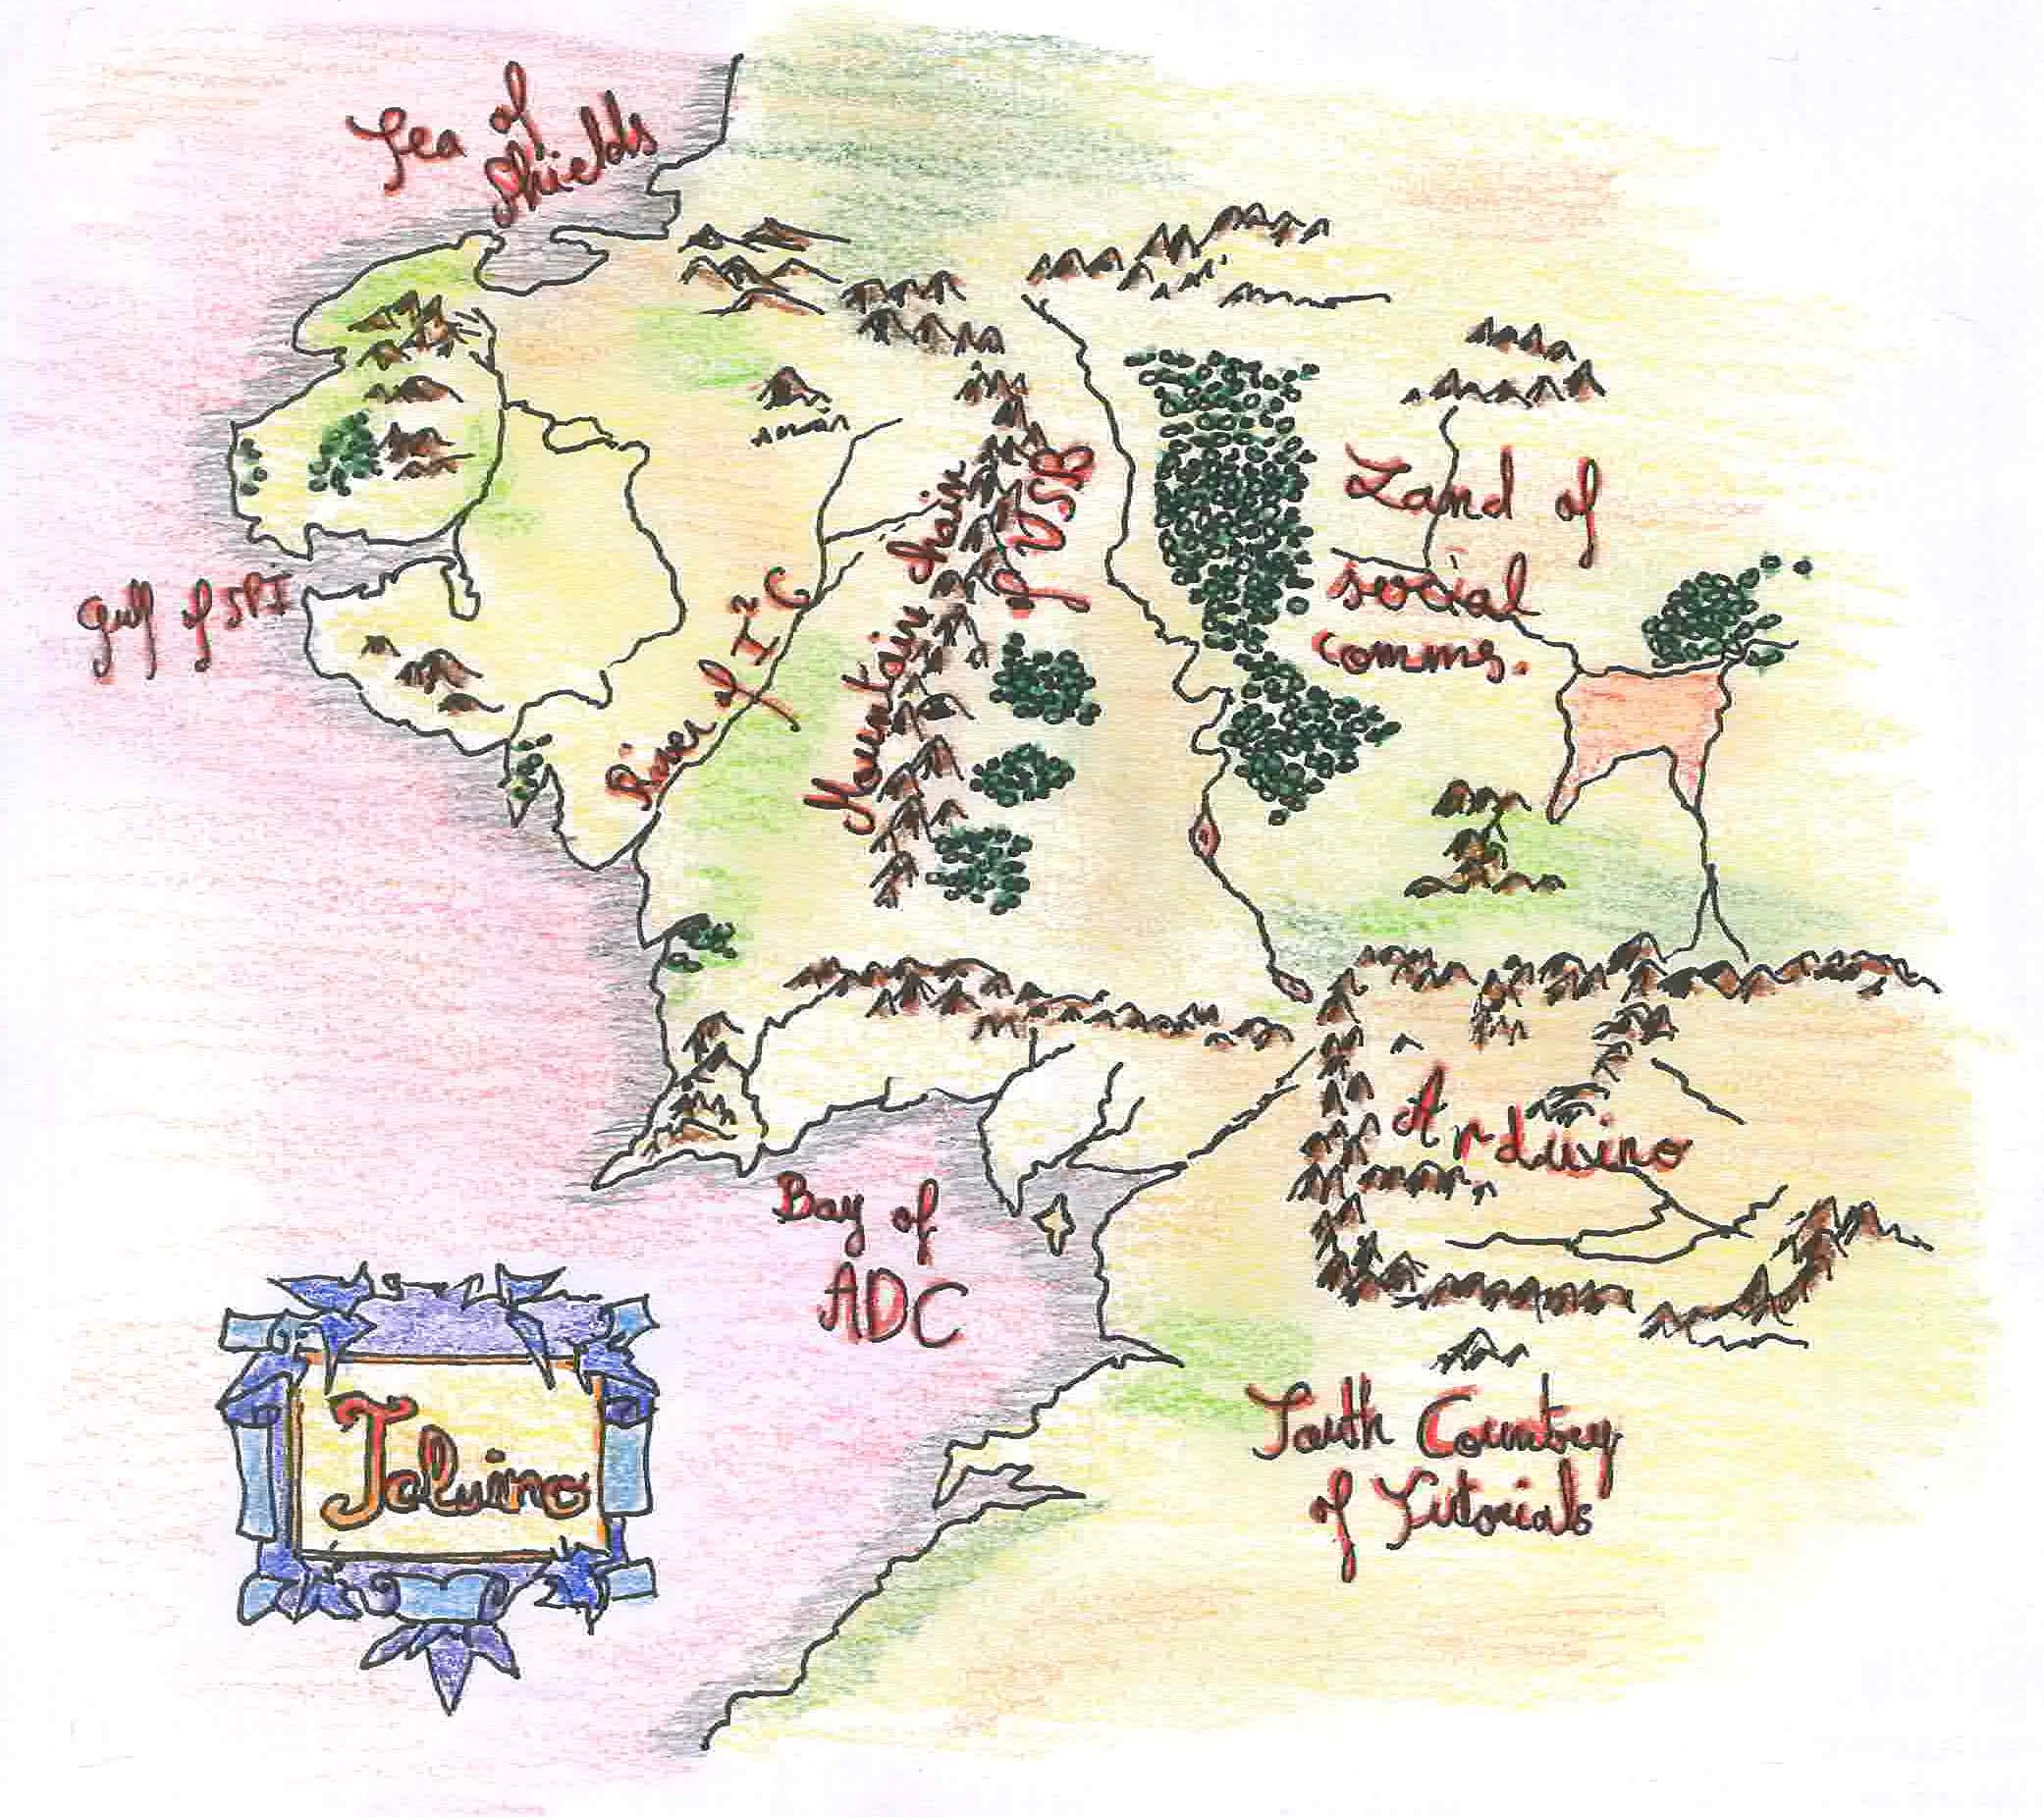 Sea of
Shields
Gulf of SPI
River of I²C
Mountain chain
of USB
Land of
social
comms.
Arduino
Bay of
ADC
South Country
of Tutorials
Tolkino